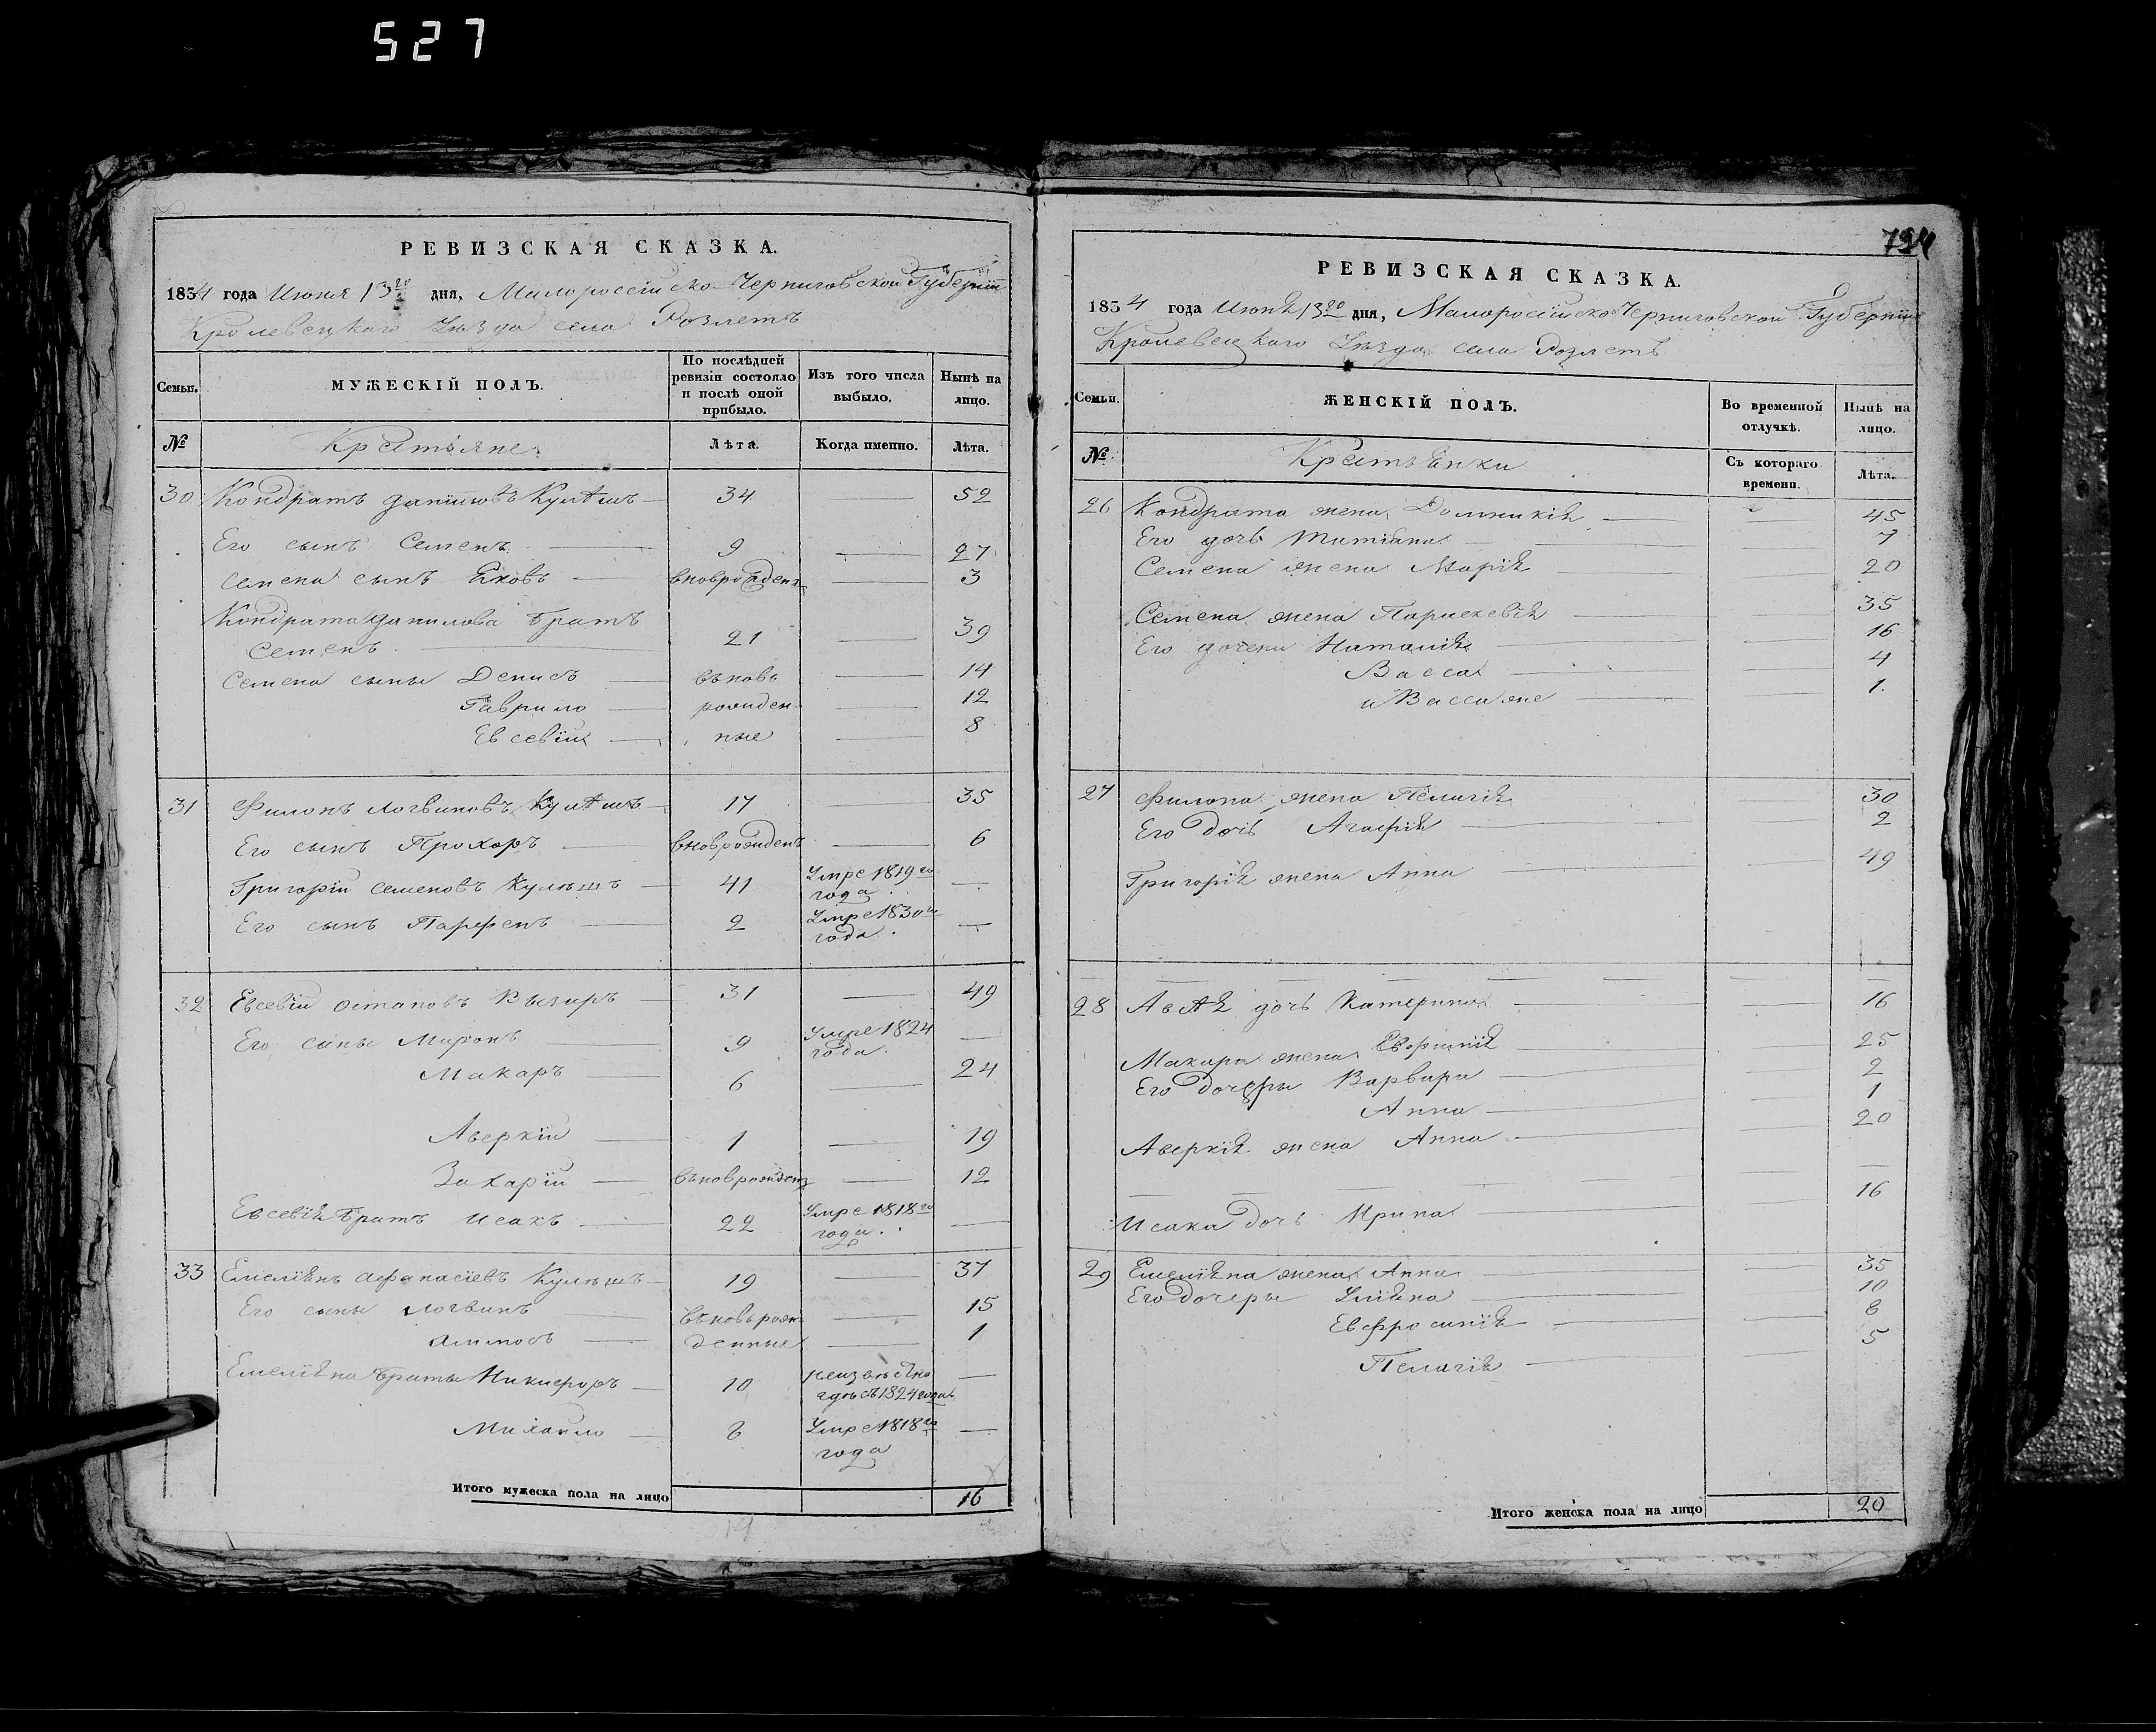 527
РЕВИЗСКАЯ СКАЗКА.
1834 года Июня 13го дня, Малороссійско-Черниговской Губерніи
Кролевецкаго Уѣзда села Розлетъ
Семьи.
МУЖЕСКІЙ ПОЛЪ.
По послѣдней ревизіи состояло и послѣ оной прибыло.
Изъ того числа выбыло.
Нынѣ на лицо.
№
Крестьяне
Лѣта.
Когда именно.
Лѣта.
30 Кондратъ Даниловъ Кулѣшъ 34 — 52
Его сынъ Семенъ 9 — 27
Семена сынъ Яковъ вноврожденъ — 3
Кондрата Данилова братъ
Семенъ 21 — 39
Семена сыны Денисъ вънов — 14
Гаврило рожден — 12
Евсевій ные — 8
31 Филонъ Логвиновъ Кулѣшъ 17 — 35
Его сынъ Прохоръ вноврожденъ — 6
Григорій Семеновъ Кулѣшъ 41 Умре 1819го года —
Его сынъ Парфенъ 2 Умре 1830го года —
32 Евсевій Остаповъ 31 — 49
Его сыны Миронъ 9 Умре 1824 года —
Макаръ 6 — 24
Аверкій 1 — 19
Захарій въноврожденъ — 12
Евсевія братъ Исакъ 22 Умре 1818го года —
33 Емелянъ Афанасіевъ Кулѣшъ 19 — 37
Его сыны Логвинъ въновьрож — 15
Амносъ денные — 1
Емеляна браты Никифоръ 10 неизвѣстно гдѣ съ 1824 года —
Михайло 8 Умре 1818го года —
Итого мужеска пола на лицо 16
794
РЕВИЗСКАЯ СКАЗКА.
1834 года Июня 13го дня, Малоросійско Черниговской Губерніи
Кролевецкаго Уѣзда села Розлетъ
Семьи.
ЖЕНСКІЙ ПОЛЪ.
Во временной отлучкѣ.
Нынѣ на лицо.
№
Крестьянки
Съ котораго времени.
Лѣта.
26 Кондрата жена Домникія — 45
Его дочь Татіана — 7
Семена жена Марія — 20
Семена жена Параскевія — 35
Его дочери Наталія — 16
Васса — 4
и Васса же — 1.
27 Филона жена Пелагія — 30
Его дочь Агафія — 2
Григорія жена Анна — 49
28 дочь Катерина — 16
Макара жена — 25
Его дочеры Варвара — 2
Анна — 1
Аверкія жена Анна — 20
Исака дочь Ирина — 16
29 Емеляна жена Анна — 35
Его дочеры Уліяна — 10
Евфросинія — 8
Пелагія — 5
Итого женска пола на лицо 20